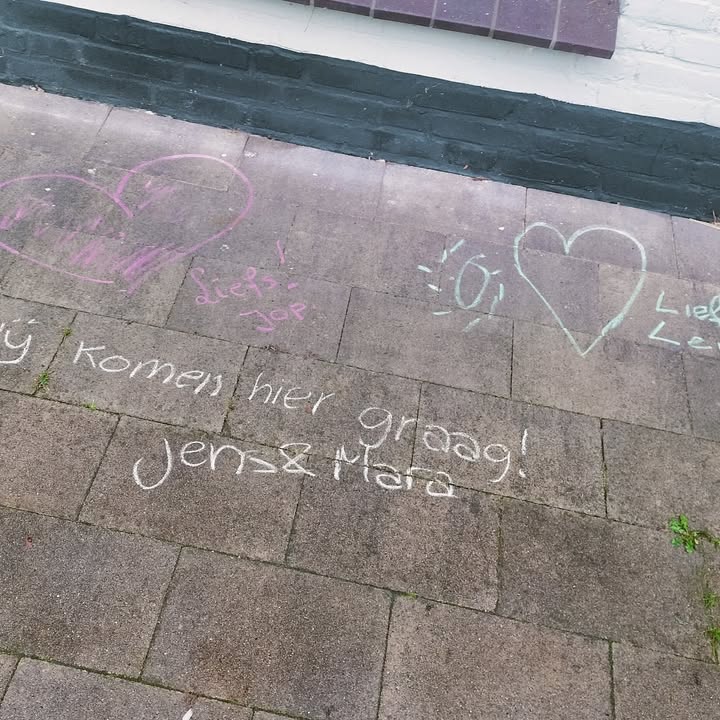 Liefs
Jop
komen hier graag!
Jens & Mara